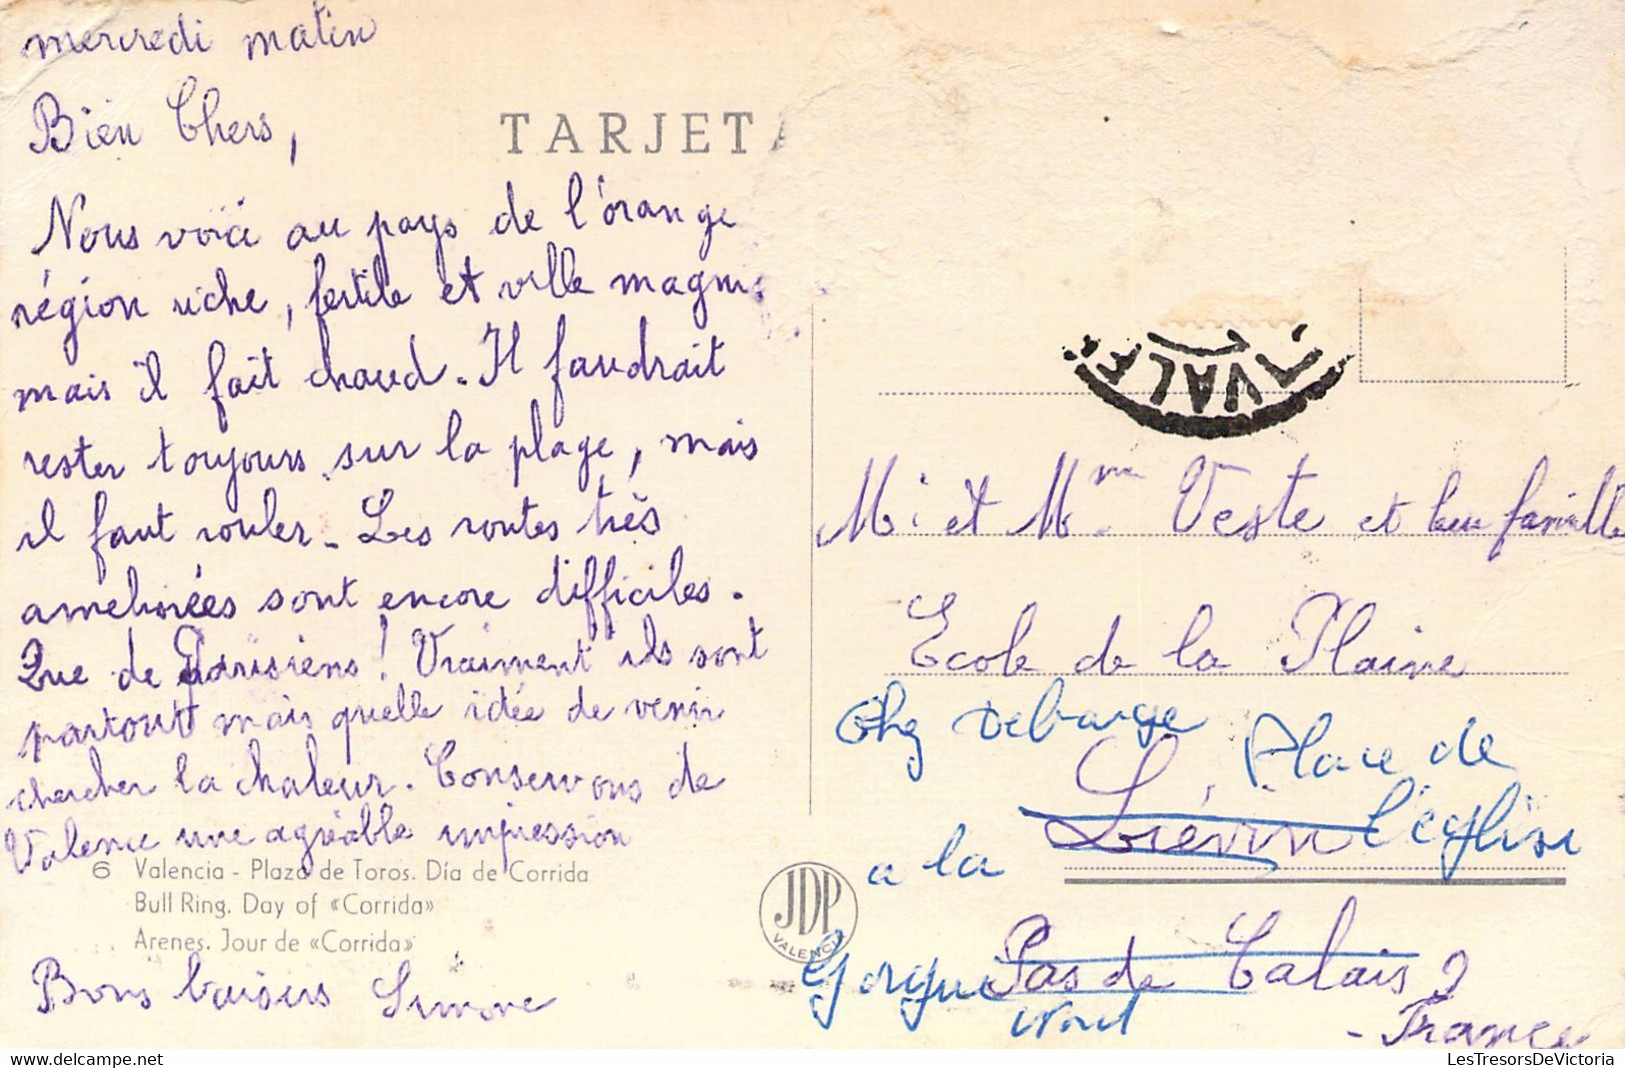 mercredi matin
Bien Chers,
TARJETA
Nous voici au pays de l'orange
région riche, fertile et ville magni
mais il fait chaud. Il faudrait
rester toujours sur la plage, mais
il faut rouler. Les routes très
ameliorées sont encore difficiles.
Que de Parisiens! Vraiment ils sont
partout mais quelle idée de venir
chercher la chaleur. Conservons de
Valence une agréable impression
6 Valencia - Plaza de Toros. Día de Corrida
Bull Ring. Day of «Corrida»
Arenes. Jour de «Corrida»
Bons baisers Simone
JDP
VALENCIA
VALE
M. et Mme Veste et leur famille
Ecole de la Plaine
Chez Debarge Place de
Liévin l'église
a la
Gorgue Pas de Calais
Nord
- France
LesTresorsDeVictoria.com